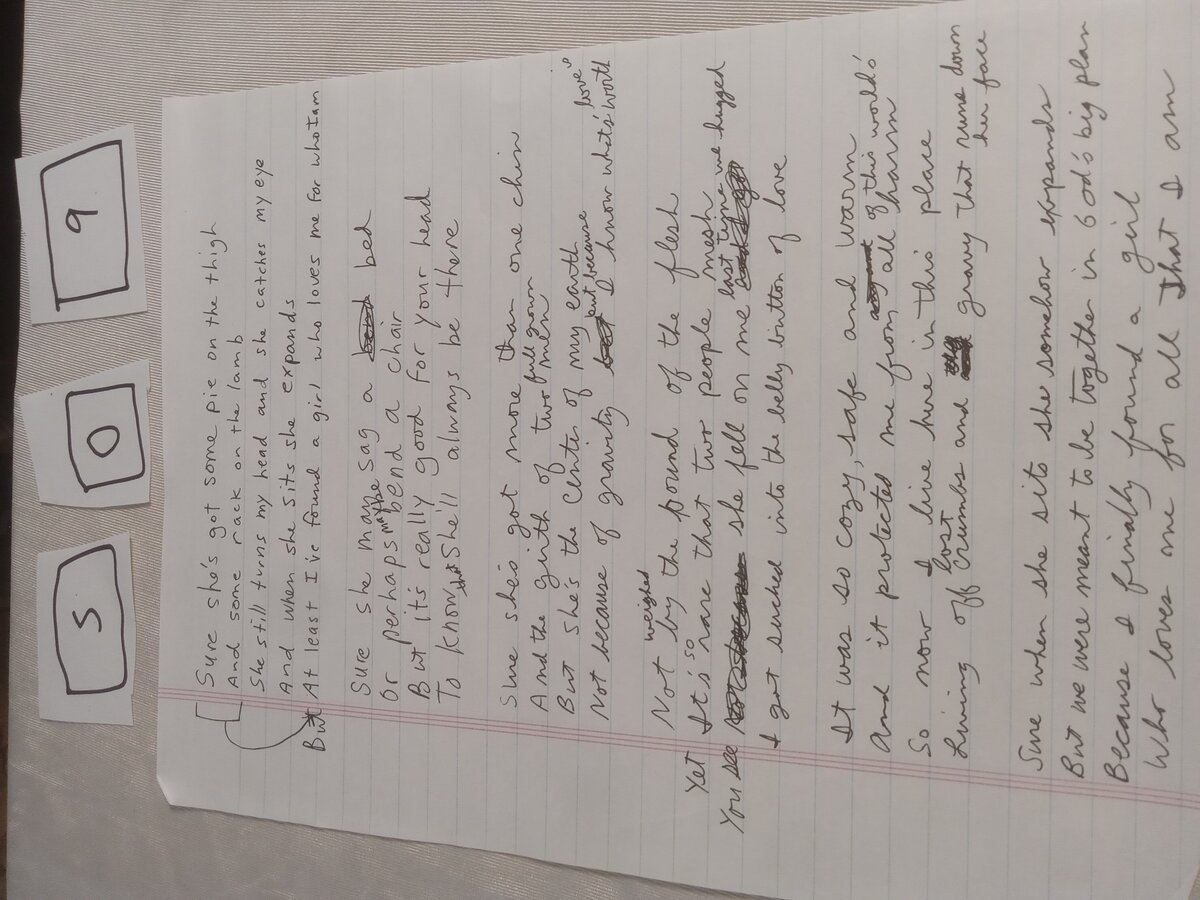 5 0 9
Sure she's got some pie on the thigh
And some rack on the lamb
She still turns my head and she catches my eye
And when she sits she expands
But At least I've found a girl who loves me for who I am
Sure she maybe sag a bend bed
Or perhaps maybe bend a chair
But it's really good for your head
To know that She'll always be there
Sure she's got more than one chin
And the girth of two full grown men
But she's the center of my earth
Not because of gravity but but because I know what's love's worth
Not weighed by the pound of the flesh
Yet It's so rare that two people mesh
You see she fell on me last time we hugged
I got sucked into the belly button of love
It was so cozy, safe and warm
And it protected me from all of this world's harm
So now I live here in this place
Living off lost crumbs and gravy that runs down her face
Sure when she sits she somehow expands
But we were meant to be together in God's big plan
Because I finally found a girl
Who loves me for all that I am